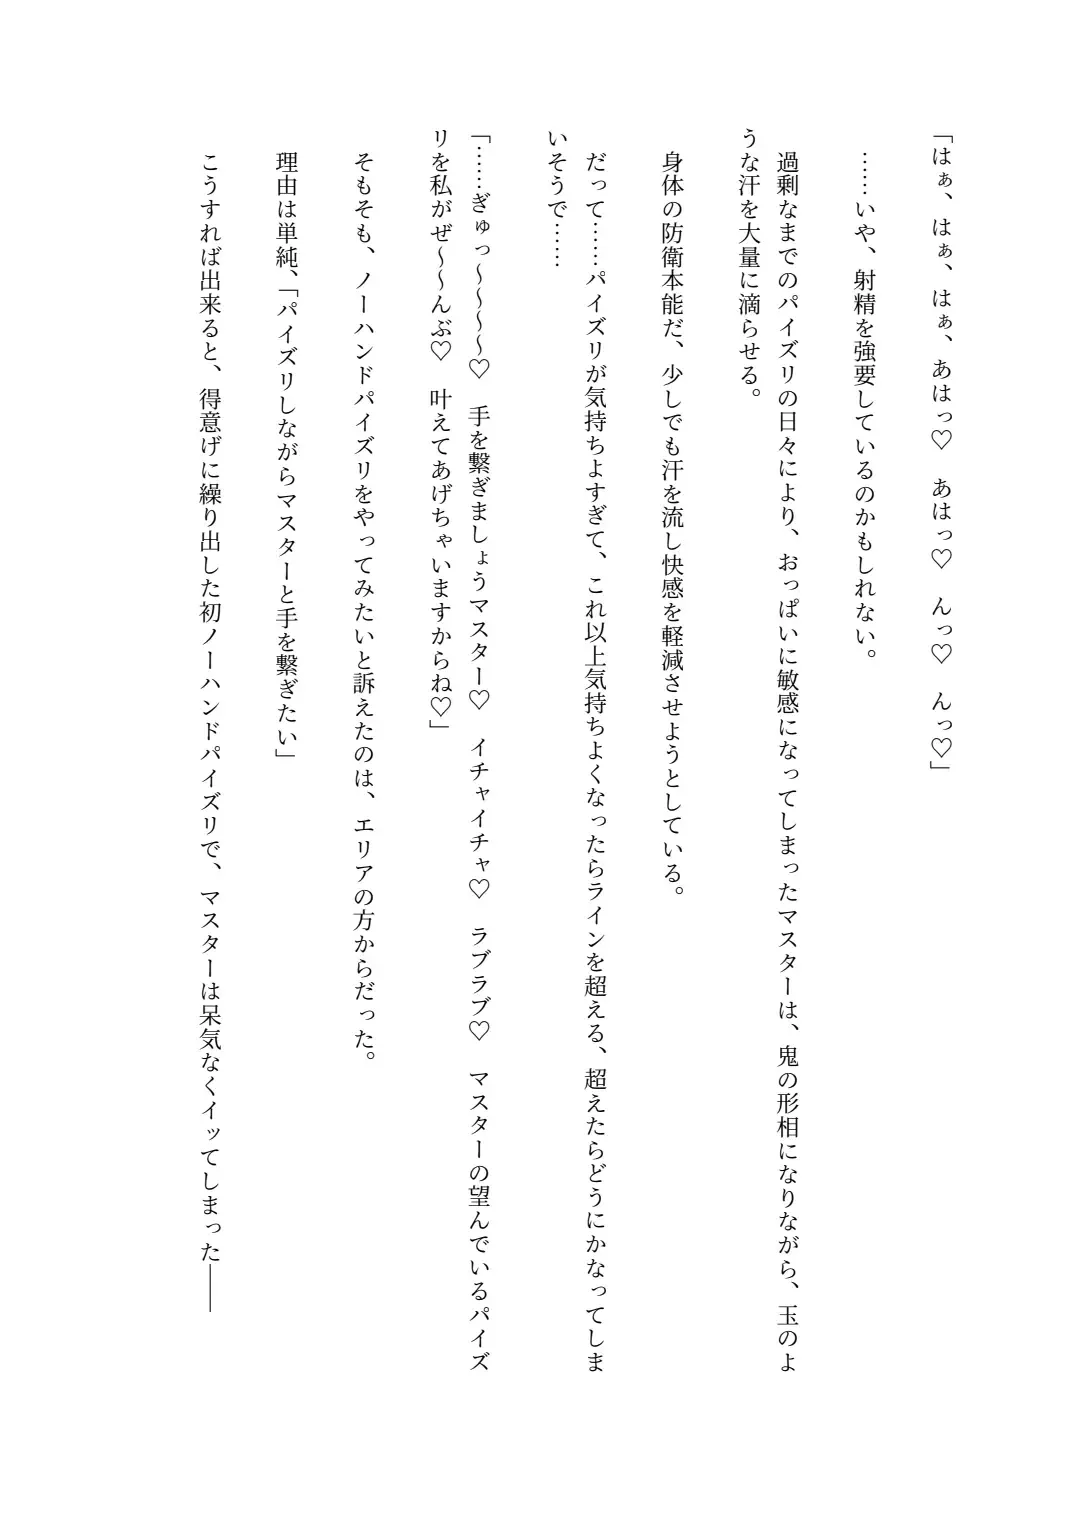 「はぁ、はぁ、はぁ、あはっ♡　あはっ♡　んっ♡　んっ♡」
……いや、射精を強要しているのかもしれない。
過剰なまでのパイズリの日々により、おっぱいに敏感になってしまったマスターは、鬼の形相になりながら、玉のよ
うな汗を大量に滴らせる。
身体の防衛本能だ、少しでも汗を流し快感を軽減させようとしている。
だって……パイズリが気持ちよすぎて、これ以上気持ちよくなったらラインを超える、超えたらどうにかなってしま
いそうで……
「……ぎゅっ～～～～♡　手を繋ぎましょうマスター♡　イチャイチャ♡　ラブラブ♡　マスターの望んでいるパイズ
リを私がぜ～～んぶ♡　叶えてあげちゃいますからね♡」
そもそも、ノーハンドパイズリをやってみたいと訴えたのは、エリアの方からだった。
理由は単純、「パイズリしながらマスターと手を繋ぎたい」
こうすれば出来ると、得意げに繰り出した初ノーハンドパイズリで、マスターは呆気なくイッてしまった――